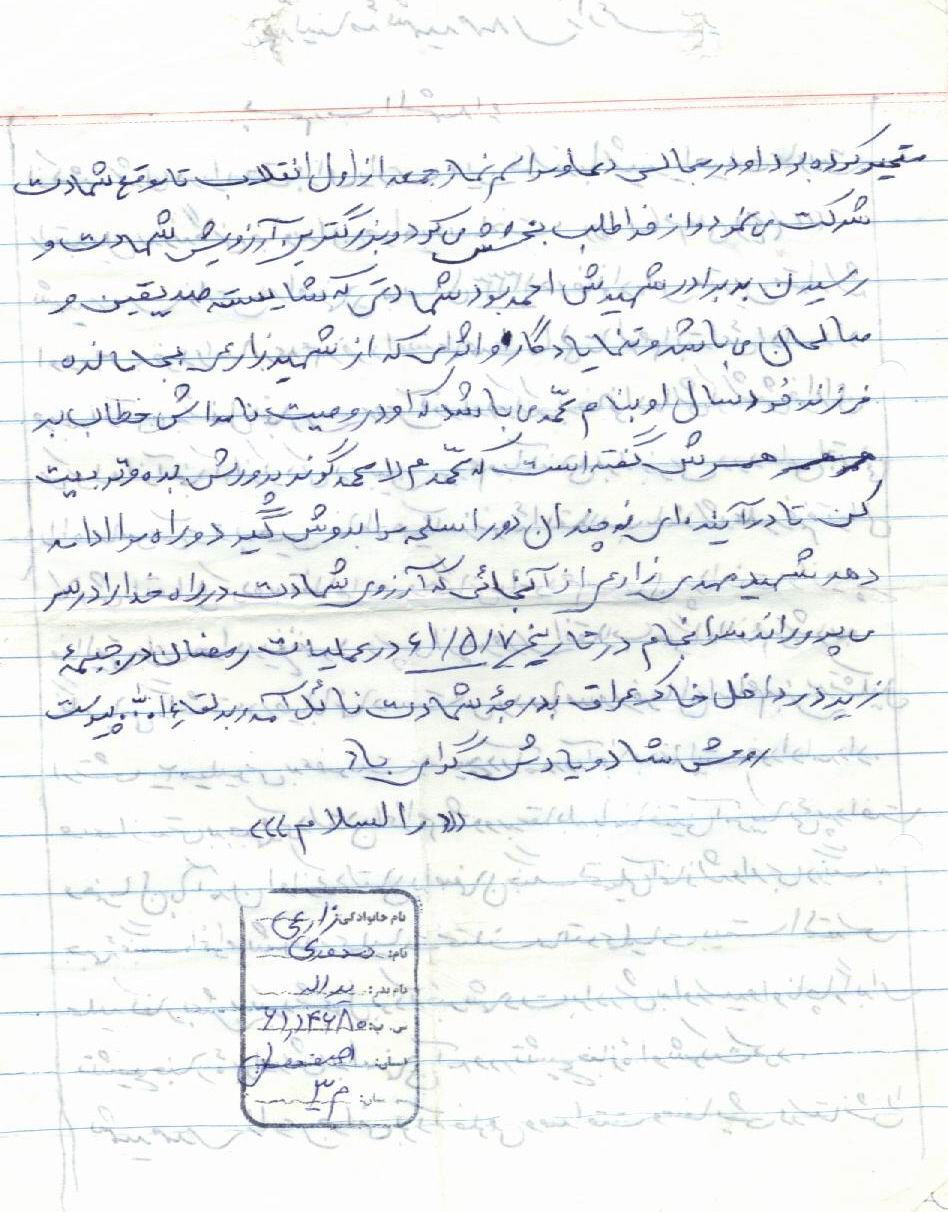 متحیر کرده بود او در مجالس دعا و مراسم نماز جمعه از اول انقلاب تا موقع شهادت
شرکت می نمود و از خدا طلب بخشش می کرد و بزرگترین آرزویش شهادت و
رسیدن به برادر شهیدش احمد بود شهادتی که شایسته صدیقین و
صالحان می باشد و تنها یادگار و اثری که از شهید زارعی بجا مانده
فرزند خردسال او بنام محمد می باشد که او در وصیت نامه اش خطاب به
همسرش گفته است که محمدم را محمد گونه پرورش بده و تربیت
کن تا در آینده ای نه چندان دور اسلحه مرا بدوش گیرد و راه مرا ادامه
دهد شهید مهدی زارعی از آنجائی که آرزوی شهادت در راه خدا را در سر
می پروراند سرانجام در تاریخ ۶۱/۵/۷ در عملیات رمضان در جبهۀ
زید در داخل خاک عراق بدرجۀ شهادت نائل آمد و به لقاء الله پیوست
روحش شاد و یادش گرامی باد
«والسلام»
نام خانوادگی: زارعی
نام: مهدی
نام پدر: یداله
اصفهان
م ۳